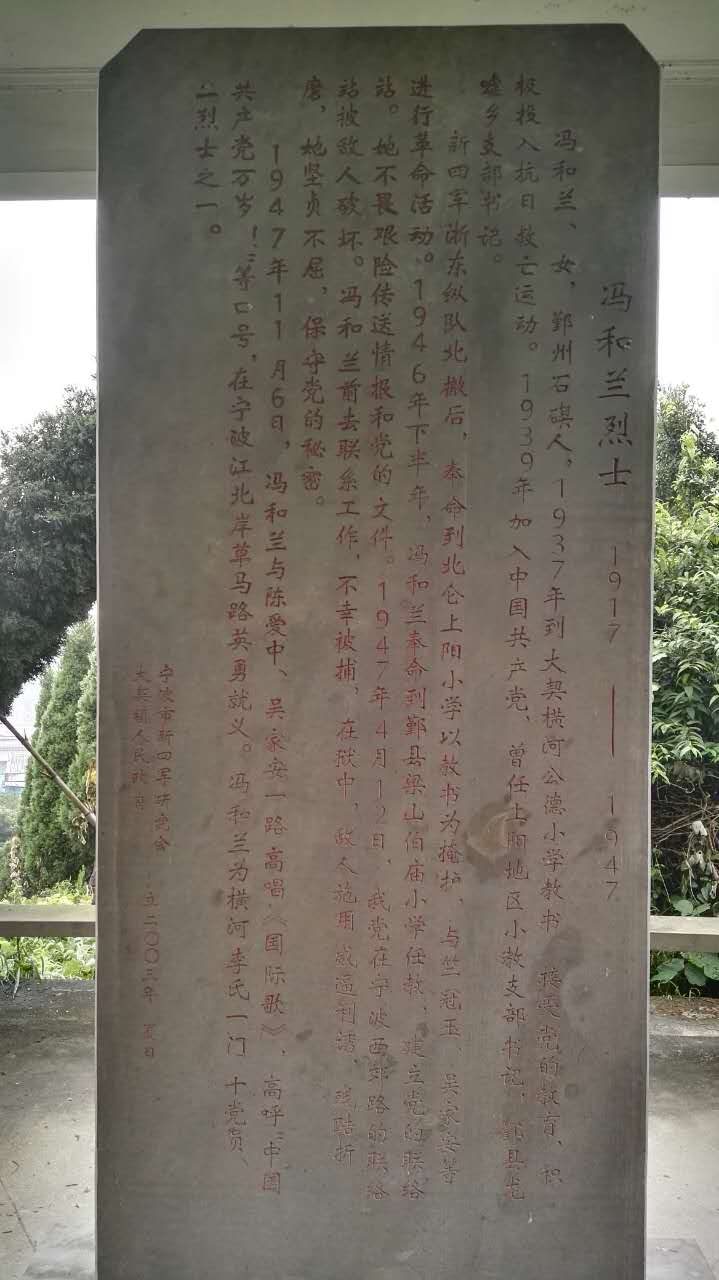 冯和兰烈士 1917——1947
冯和兰、女，鄞州石碶人，1937年到大契横河公德小学教书，接受党的教育、积
极投入抗日救亡运动。1939年加入中国共产党，曾任上阳地区小教支部书记，鄞县龙
嘘乡支部书记。
新四军浙东纵队北撤后，奉命到北仑上阳小学以教书为掩护，与竺冠玉、吴家安等
进行革命活动。1946年下半年，冯和兰奉命到鄞县梁山伯庙小学任教，建立党的联络
站。她不畏艰险传送情报和党的文件。1947年4月12日，我党在宁波西郊路的联络
站被敌人破坏。冯和兰前去联系工作，不幸被捕，在狱中，敌人施用威逼利诱，残酷折
磨，她坚贞不屈，保守党的秘密。
1947年11月6日，冯和兰与陈爱中、吴家安一路高唱《国际歌》，高呼“中国
共产党万岁！”等口号，在宁波江北岸草马路英勇就义。冯和兰为横河李氏一门 十党员、
二烈士之一。
宁波市新四军研究会
大契镇人民政府
立二〇〇三年 夏日